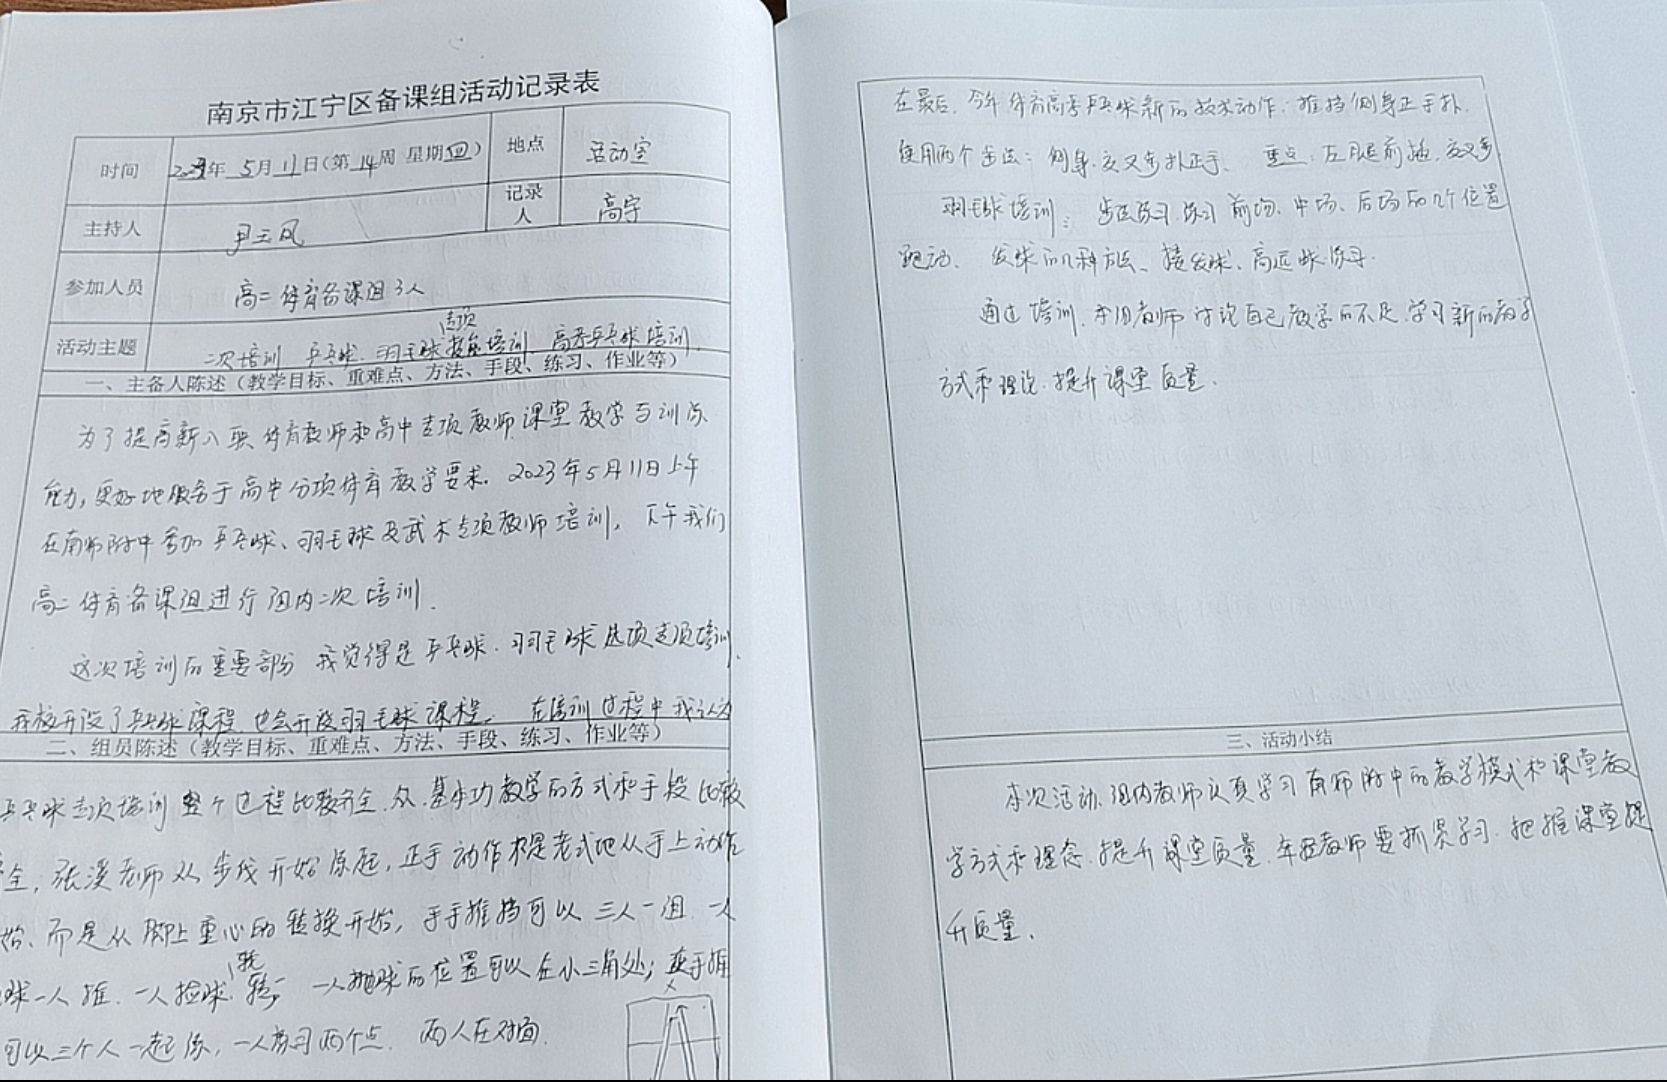 南京市江宁区备课组活动记录表
时间 2023年 5月 11日(第 14周 星期四) 地点 活动室
主持人 尹玉风 记录人 高宇
参加人员 高二体育备课组3人
活动主题 二次培训 乒乓球、羽毛球专项技能培训 高考乒乓球培训.
一、主备人陈述(教学目标、重难点、方法、手段、练习、作业等)
为了提高新入职体育教师和高中专项教师课堂教学与训练
能力,更好地服务于高中分项体育教学要求. 2023年5月11日上午
在南师附中参加乒乓球、羽毛球及武术专项教师培训, 下午我们
高二体育备课组进行组内二次培训.
这次培训的重要部分 我觉得是乒乓球、羽毛球选项专项培训.
我校开设了乒乓球课程,也会开设羽毛球课程. 在培训过程中我认为
二、组员陈述(教学目标、重难点、方法、手段、练习、作业等)
乒乓球专项培训整个过程比较齐全,从基本功教学的方式和手段比较
全,张溪老师从步伐开始练起,正手动作不是老式地从手上动作
始、而是从脚上重心的转换开始, 推挡可以三人一组 一人
球一人推. 一人捡球. 轮转, 一人抛球的位置可以在小三角处;
可以三个人一起练, 一人练习两个点. 两人在对面.
在最后, 今年体育高考乒乓球新的技术动作:推挡侧身正手扑.
使用两个步法: 侧身、交叉步扑正手. 重点:左脚前插,交叉步
羽毛球培训: 步法练习.练习前场、中场、后场的几个位置
跑动. 发球的几种方法、接发球、高远球练习.
通过培训.本组教师讨论自己教学的不足.学习新的教学
方式和理论.提升课堂质量.
三、活动小结
本次活动.组内教师认真学习南师附中的教学模式和课堂教
学方式和理念.提升课堂质量.年轻教师要抓紧学习.把握课堂提
升质量.